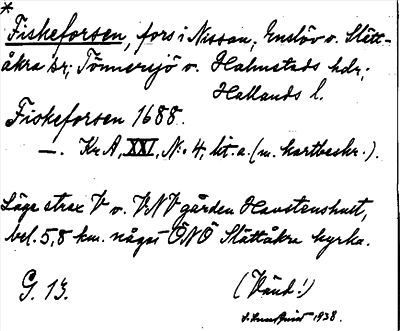 *
Fiskeforsen, fors i Nissan, Enslöv o. Slätt-
åkra sr; Tönnersjö o. Halmstads hdr;
Hallands l.
Fiskeforsen 1688.
—. KrA, XXI, N:o 4, lit. a. (m. kartbeskr.).
Läge strax V o. VNV gården Havstenshult,
bel. 5,8 km. något ÖNÖ Slättåkra kyrka.
G. 13.
(Vänd!)
1938.